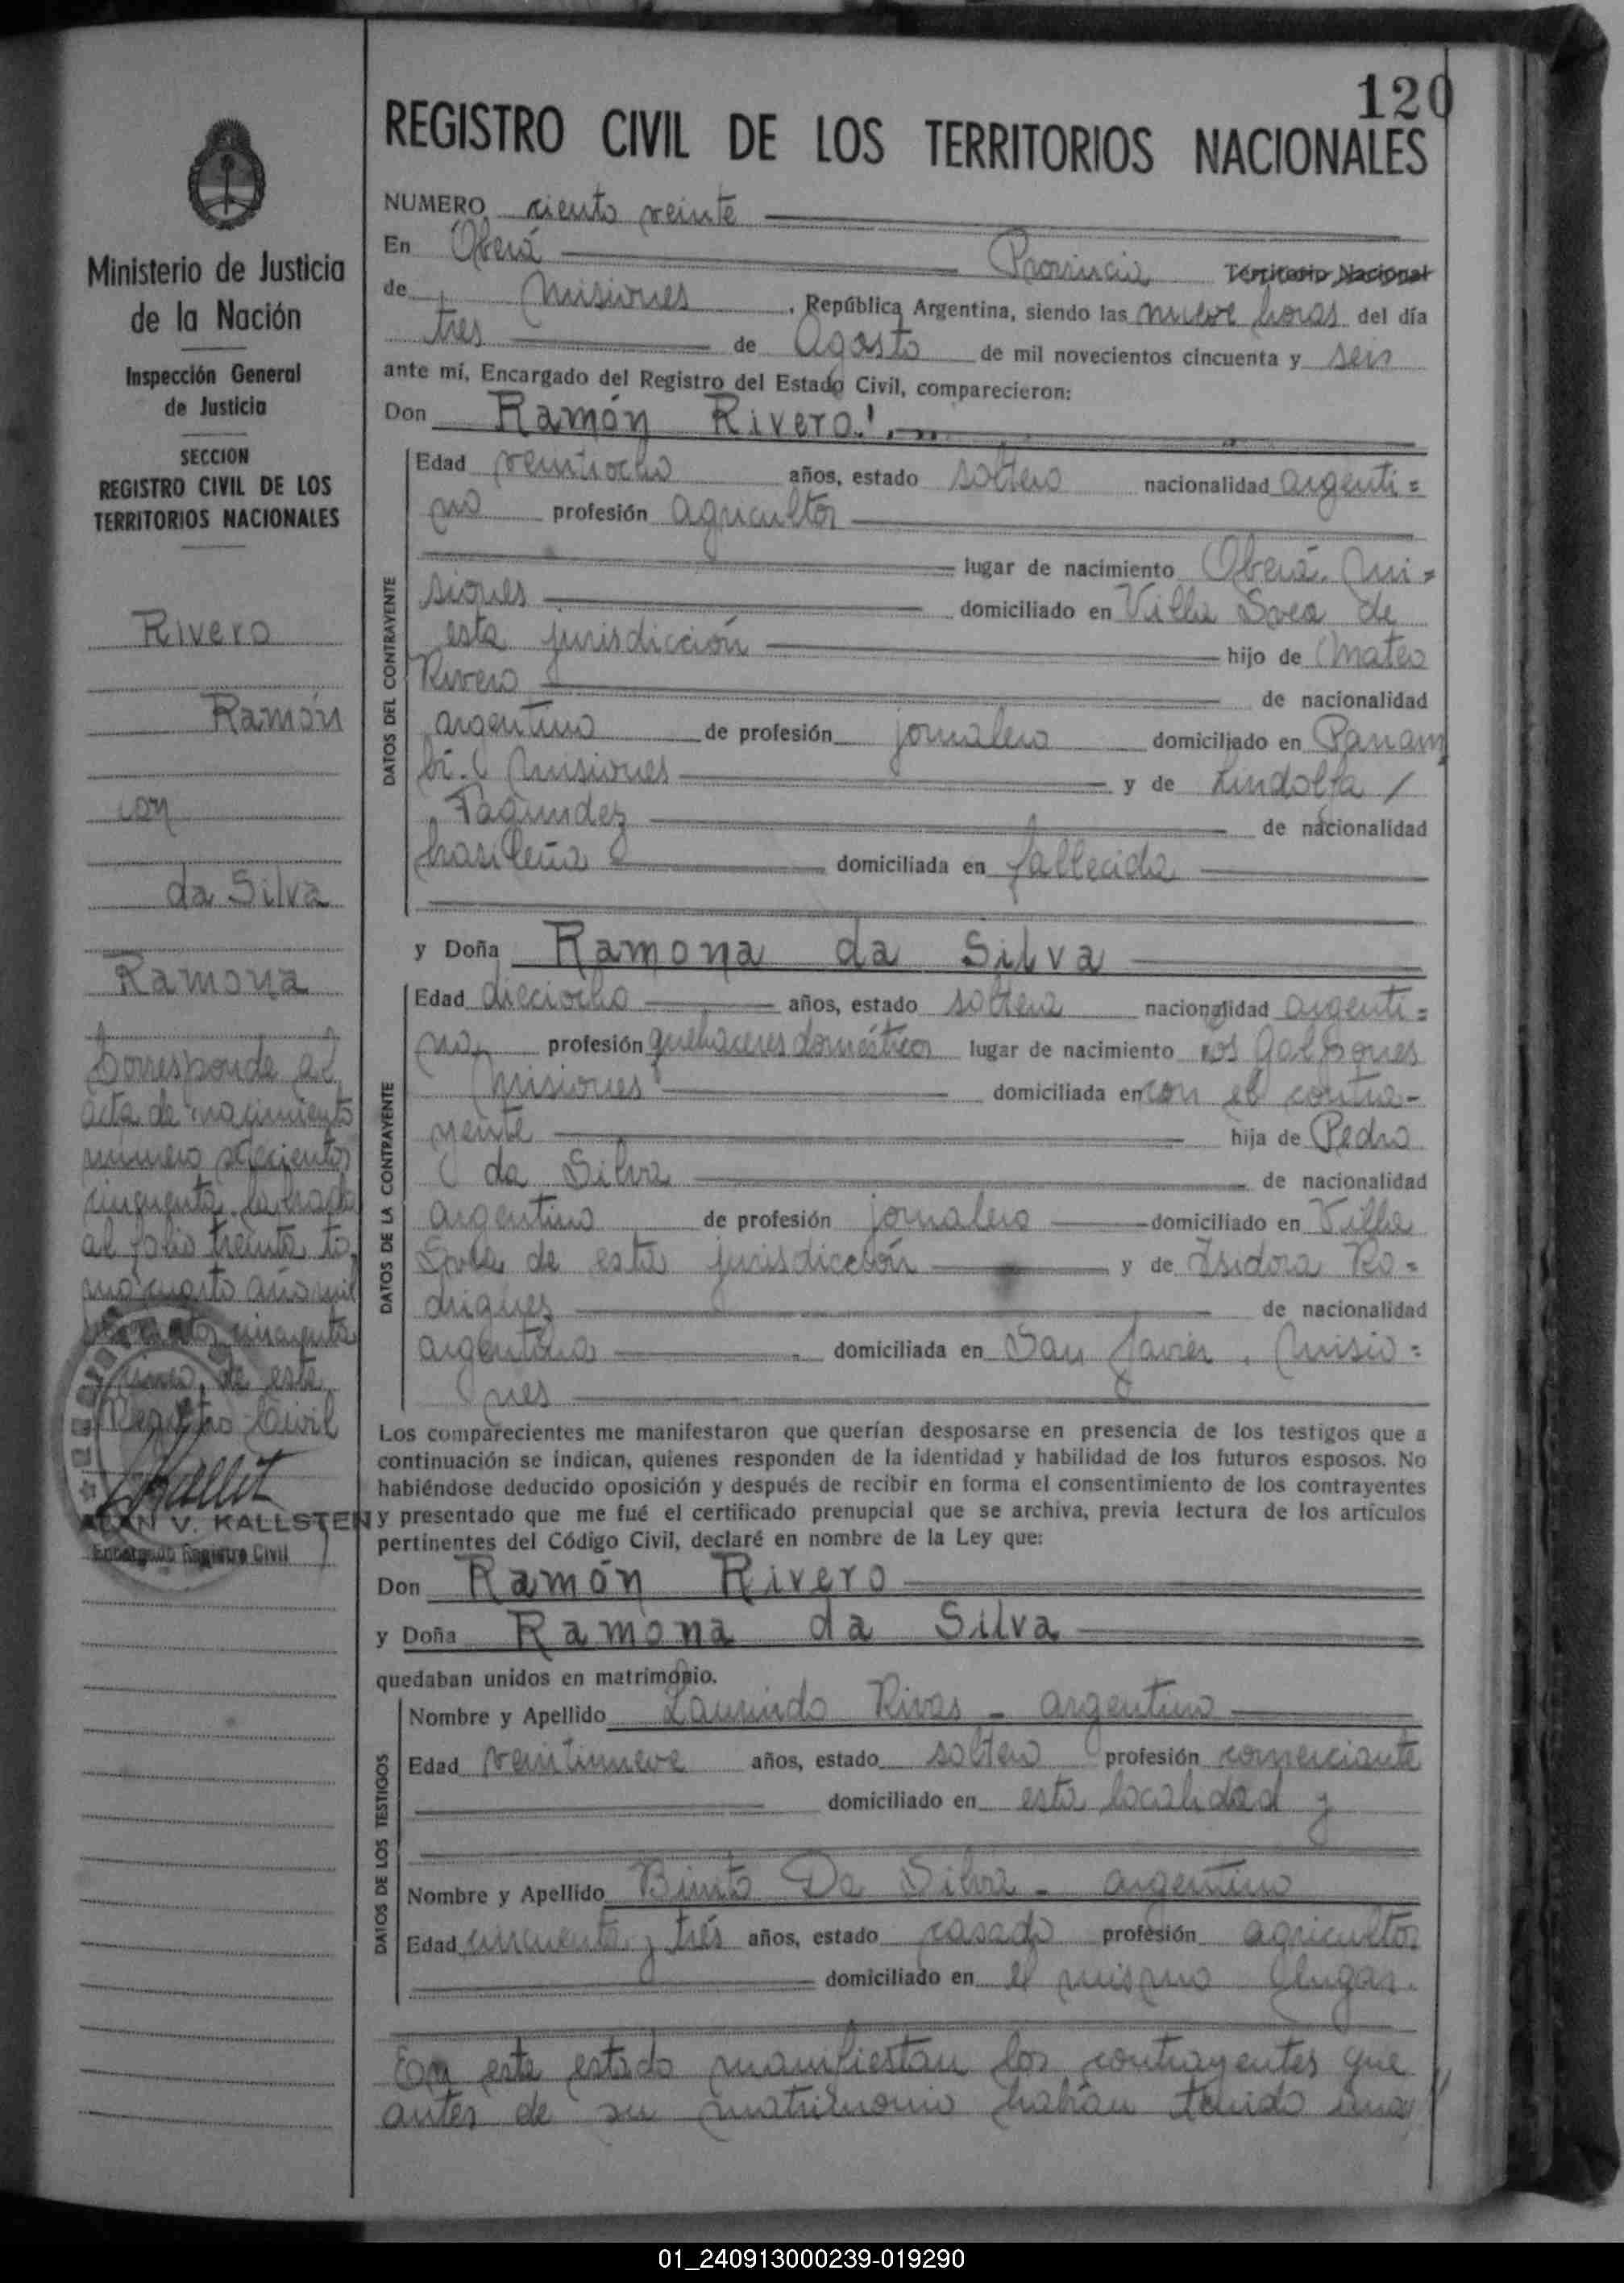 120
REGISTRO CIVIL DE LOS TERRITORIOS NACIONALES
Ministerio de Justicia
de la Nación
Inspección General
de Justicia
SECCION
REGISTRO CIVIL DE LOS
TERRITORIOS NACIONALES
Rivero
Ramón
con
da Silva
Ramona
Corresponde al
acta de nacimiento
número setecientos
cincuenta labrada
al folio treinta to
mo cuarto año mil
cincuenta
cinco de este
Registro Civil
V. KALLSTEN
Encargado Registro Civil
NUMERO ciento veinte
En Oberá Provincia Territorio Nacional
de Misiones, República Argentina, siendo las nueve horas del día
tres de Agosto de mil novecientos cincuenta y seis
ante mí, Encargado del Registro del Estado Civil, comparecieron:
Don Ramón Rivero
DATOS DEL CONTRAYENTE
Edad veintiocho años, estado soltero nacionalidad argenti=
no profesión agricultor
lugar de nacimiento Oberá. Mi=
siones domiciliado en Villa Svea de
esta jurisdicción hijo de Mateo
Rivero de nacionalidad
argentino de profesión jornalero domiciliado en Panam
bi. Misiones y de Lindolfa /
Fagundez de nacionalidad
brasileña domiciliada en fallecida
y Doña Ramona da Silva
DATOS DE LA CONTRAYENTE
Edad dieciocho años, estado soltera nacionalidad argenti=
na profesión quehaceres domésticos lugar de nacimiento Los Galpones
Misiones domiciliada en con el contra-
yente hija de Pedro
da Silva de nacionalidad
argentino de profesión jornalero domiciliado en Villa
Svea de esta jurisdicción y de Isidora Ro=
drigues de nacionalidad
argentina domiciliada en San Javier. Misio=
nes
Los comparecientes me manifestaron que querían desposarse en presencia de los testigos que a
continuación se indican, quienes responden de la identidad y habilidad de los futuros esposos. No
habiéndose deducido oposición y después de recibir en forma el consentimiento de los contrayentes
y presentado que me fué el certificado prenupcial que se archiva, previa lectura de los artículos
pertinentes del Código Civil, declaré en nombre de la Ley que:
Don Ramón Rivero
y Doña Ramona da Silva
quedaban unidos en matrimonio.
DATOS DE LOS TESTIGOS
Nombre y Apellido Laurindo Rivas - argentino
Edad veintinueve años, estado soltero profesión comerciante
domiciliado en esta localidad y
Nombre y Apellido Da Silva - argentino
Edad cincuenta y trés años, estado casado profesión agricultor
domiciliado en el mismo lugar.
En este estado manifiestan los contrayentes que
antes de su matrimonio habían tenido una
01_240913000239-019290